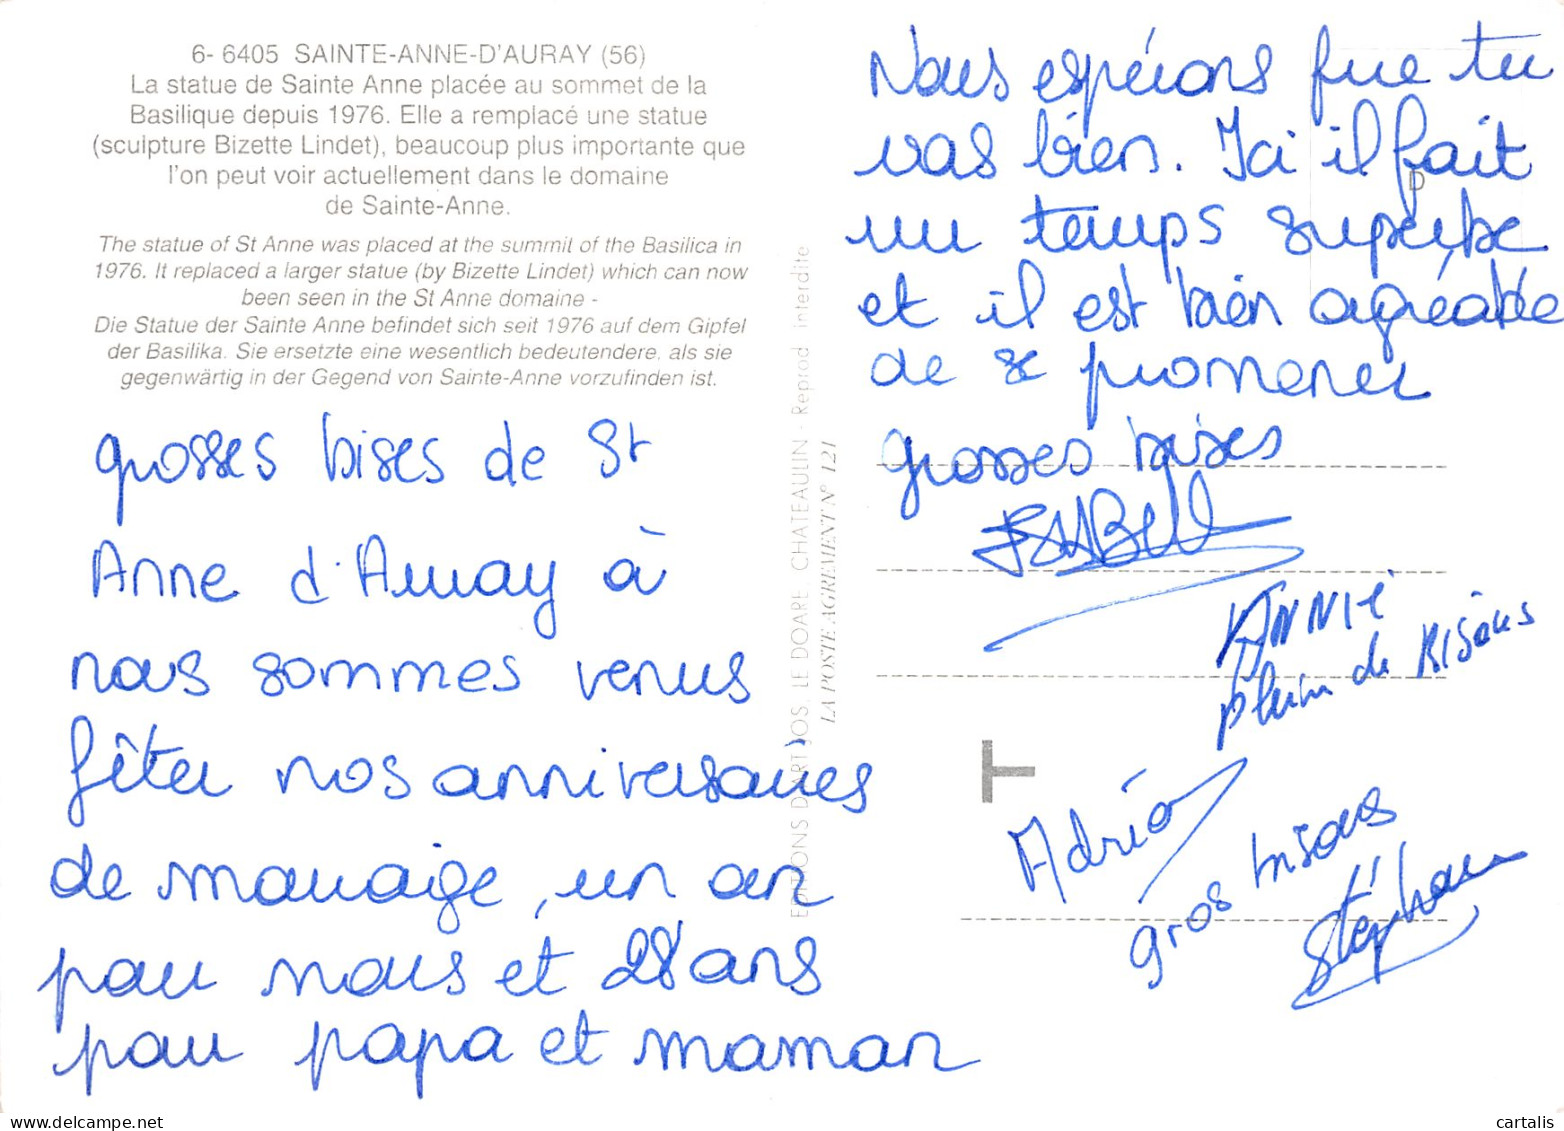 6- 6405 SAINTE-ANNE-D'AURAY (56)
La statue de Sainte Anne placée au sommet de la
Basilique depuis 1976. Elle a remplacé une statue
(sculpture Bizette Lindet), beaucoup plus importante que
l'on peut voir actuellement dans le domaine
de Sainte-Anne.
The statue of St Anne was placed at the summit of the Basilica in
1976. It replaced a larger statue (by Bizette Lindet) which can now
been seen in the St Anne domaine -
Die Statue der Sainte Anne befindet sich seit 1976 auf dem Gipfel
der Basilika. Sie ersetzte eine wesentlich bedeutendere, als sie
gegenwärtig in der Gegend von Sainte-Anne vorzufinden ist.
grosses bises de St
Anne d'Auray à
nous sommes venus
fêter nos anniversaires
de mariage, un an
pour nous et 28 ans
pour papa et maman
EDITIONS D'ART JOS LE DOARE CHATEAULIN - Reprod interdite
LA POSTE AGREMENT N° 121
Nous espérons que tu
vas bien. Ici il fait
un temps superbe
et il est bien agréable
de se promener
grosses bises
ANNIE
plein de BISOUS
Adrio
gros bisous
Stéphane
D
T
cartalis